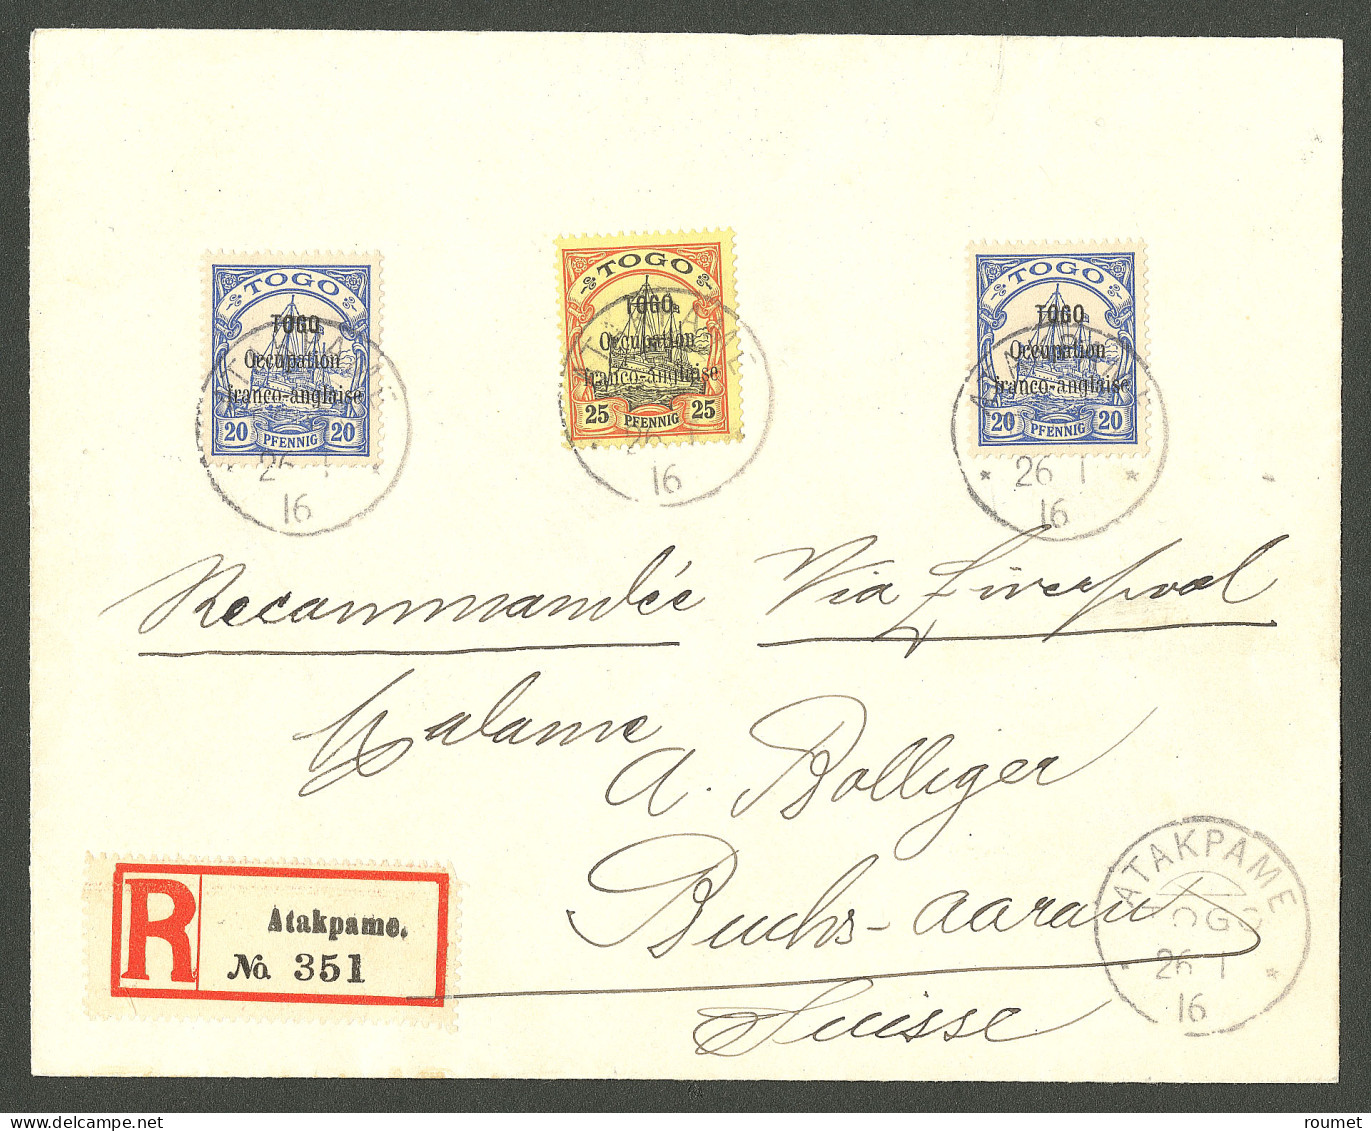 TOGO
TOGO
Occupation
franco-anglaise
20 PFENNIG 20
26 1
16
TOGO
TOGO
Occupation
franco-anglaise
25 PFENNIG 25
26 1
16
TOGO
TOGO
Occupation
franco-anglaise
20 PFENNIG 20
* 26 1 *
16
Recommandée Via Liverpool
Madame
A. Bolliger
Buchs-Aarau
Suisse
R Atakpame.
No. 351
ATAKPAME
TOGO
26 1 *
16
roumet